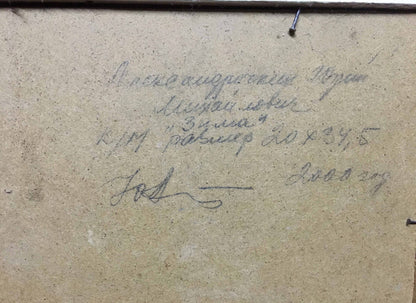 Александровский Юрий
Михайлович
"Зима"
к/м размер 20х34,5
2000 год